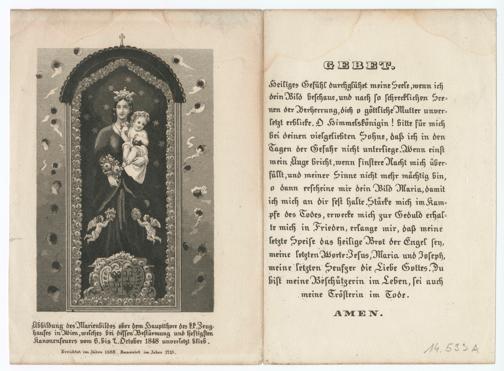 Abbildung des Marienbildes ober dem Hauptthore des k.k. Zeug-
hauses in Wien, welches bei dessen Bestürmung und heftigsten
Kanonenfeuers vom 6. bis 7. October 1848 unversetzt blieb.
Errichtet im Jahre 1688. Renovirt im Jahre
GEBET.
Heiliges Gefühl durchglühet meine Seele, wenn ich
dein Bild beschaue, und nach so schrecklichen Sce-
nen der Verheerung, dich o göttliche Mutter unver-
letzt erblicke. O Himmelskönigin! bitte für mich
bei deinen vielgeliebten Sohne, daß ich in den
Tagen der Gefahr nicht unterliege. Wenn einst
mein Auge bricht, wenn finstere Nacht mich über-
fällt, und meiner Sinne nicht mehr mächtig bin,
o dann erscheine mir dein Bild Maria, damit
ich mich an dir fest halte. Stärke mich im Kam-
pfe des Todes, erwecke mich zur Geduld erhal-
te mich in Frieden, erlange mir, daß meine
letzte Speise das heilige Brot der Engel sey,
meine letzten Worte: Jesus, Maria und Joseph,
meine letzten Seufzer die Liebe Gottes. Du
bist meine Beschützerin im Leben, sei auch
meine Trösterin im Tode.
AMEN.
14.533A